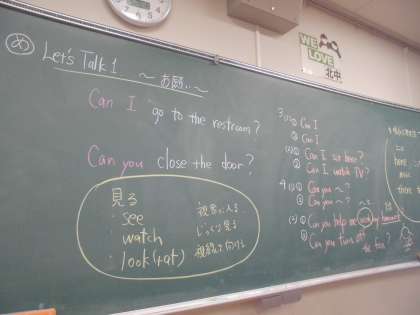 め
Let's Talk 1
～お願い～
Can I go to the restroom?
Can you close the door?
見る
see 視界に入る
watch じっくり見る
look(+at) 視線を向ける
WE
LOVE
北中
3 (1) ① Can I
② Can I
(2) ① Can I
② Can I watch TV?
4 (1) ① Can you ~?
② Can you ~?
(2) ① Can you help me
② Can you turn off the fan?